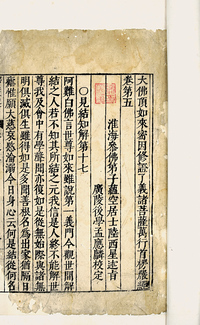 大佛頂如來密因修證了義諸菩薩萬行首楞嚴
卷第五
淮海參佛弟子蘊空居士陸西星述旨
廣陵後學孟應麟校定
〇見結知解第十七
阿難白佛言世尊如來雖說第 義門今觀世間解
結之人若不知其所結之元我信是人終不能解世
尊我及會中有學聲聞亦復如是從無始際與諸無
明俱滅俱生雖得如是多聞善根名為出家猶隔日
瘧惟願大慈哀愍淪溺今日身心云何是結從何名